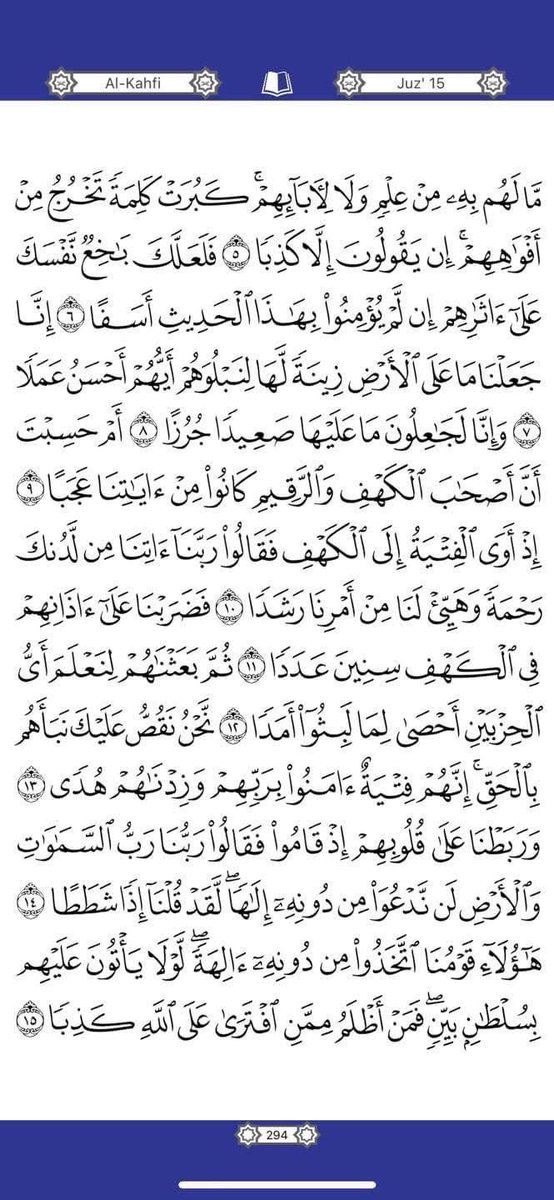 Al-Kahfi
Juz' 15
مَّا لَهُم بِهِۦ مِنْ عِلْمٍ وَلَا لِأٓبَآئِهِمْ ۚ كَبُرَتْ كَلِمَةً تَخْرُجُ مِنْ
أَفْوَٰهِهِمْ ۚ إِن يَقُولُونَ إِلَّا كَذِبًا ٥ فَلَعَلَّكَ بَٰخِعٌ نَّفْسَكَ
عَلَىٰٓ ءَاثَٰرِهِمْ إِن لَّمْ يُؤْمِنُوا۟ بِهَٰذَا ٱلْحَدِيثِ أَسَفًا ٦ إِنَّا
جَعَلْنَا مَا عَلَى ٱلْأَرْضِ زِينَةً لَّهَا لِنَبْلُوَهُمْ أَيُّهُمْ أَحْسَنُ عَمَلًا
٧ وَإِنَّا لَجَٰعِلُونَ مَا عَلَيْهَا صَعِيدًا جُرُزًا ٨ أَمْ حَسِبْتَ
أَنَّ أَصْحَٰبَ ٱلْكَهْفِ وَٱلرَّقِيمِ كَانُوا۟ مِنْ ءَايَٰتِنَا عَجَبًا ٩
إِذْ أَوَى ٱلْفِتْيَةُ إِلَى ٱلْكَهْفِ فَقَالُوا۟ رَبَّنَآ ءَاتِنَا مِن لَّدُنكَ
رَحْمَةً وَهَيِّئْ لَنَا مِنْ أَمْرِنَا رَشَدًا ١٠ فَضَرَبْنَا عَلَىٰٓ ءَاذَانِهِمْ
فِى ٱلْكَهْفِ سِنِينَ عَدَدًا ١١ ثُمَّ بَعَثْنَٰهُمْ لِنَعْلَمَ أَىُّ
ٱلْحِزْبَيْنِ أَحْصَىٰ لِمَا لَبِثُوٓا۟ أَمَدًا ١٢ نَّحْنُ نَقُصُّ عَلَيْكَ نَبَأَهُم
بِٱلْحَقِّ ۚ إِنَّهُمْ فِتْيَةٌ ءَامَنُوا۟ بِرَبِّهِمْ وَزِدْنَٰهُمْ هُدًى ١٣
وَرَبَطْنَا عَلَىٰ قُلُوبِهِمْ إِذْ قَامُوا۟ فَقَالُوا۟ رَبُّنَا رَبُّ ٱلسَّمَٰوَٰتِ
وَٱلْأَرْضِ لَن نَّدْعُوَا۟ مِن دُونِهِۦٓ إِلَٰهًا ۖ لَّقَدْ قُلْنَآ إِذًا شَطَطًا ١٤
هَٰٓؤُلَآءِ قَوْمُنَا ٱتَّخَذُوا۟ مِن دُونِهِۦٓ ءَالِهَةً ۖ لَّوْلَا يَأْتُونَ عَلَيْهِم
بِسُلْطَٰنٍۭ بَيِّنٍ ۖ فَمَنْ أَظْلَمُ مِمَّنِ ٱفْتَرَىٰ عَلَى ٱللَّهِ كَذِبًا ١٥
294